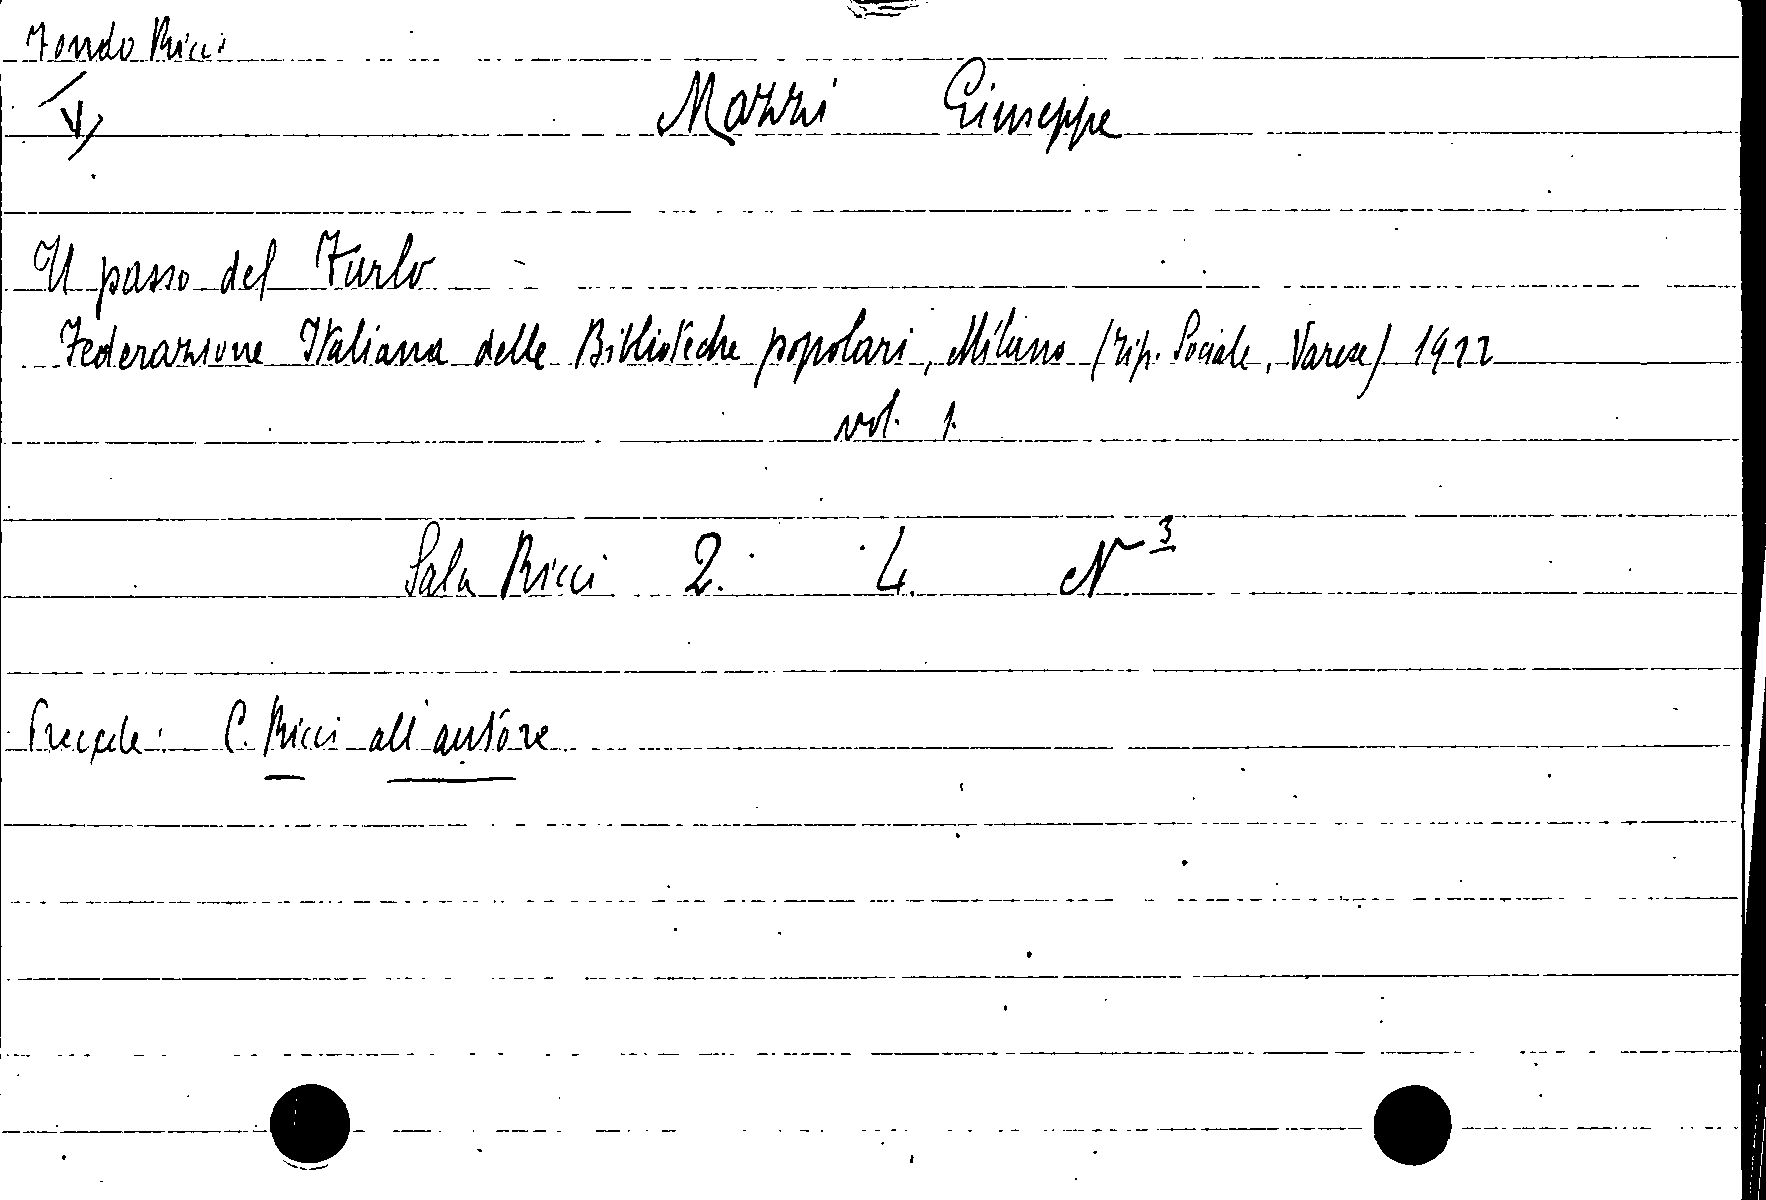 Fondo Ricci
V
Mazzi Giuseppe
Il passo del Furlo
Federazione Italiana delle Biblioteche popolari, Milano (Tip. Sociale, Varese) 1922
vol. 1.
Sala Ricci 2. 4. N 3
Precede: C. Ricci all'autore